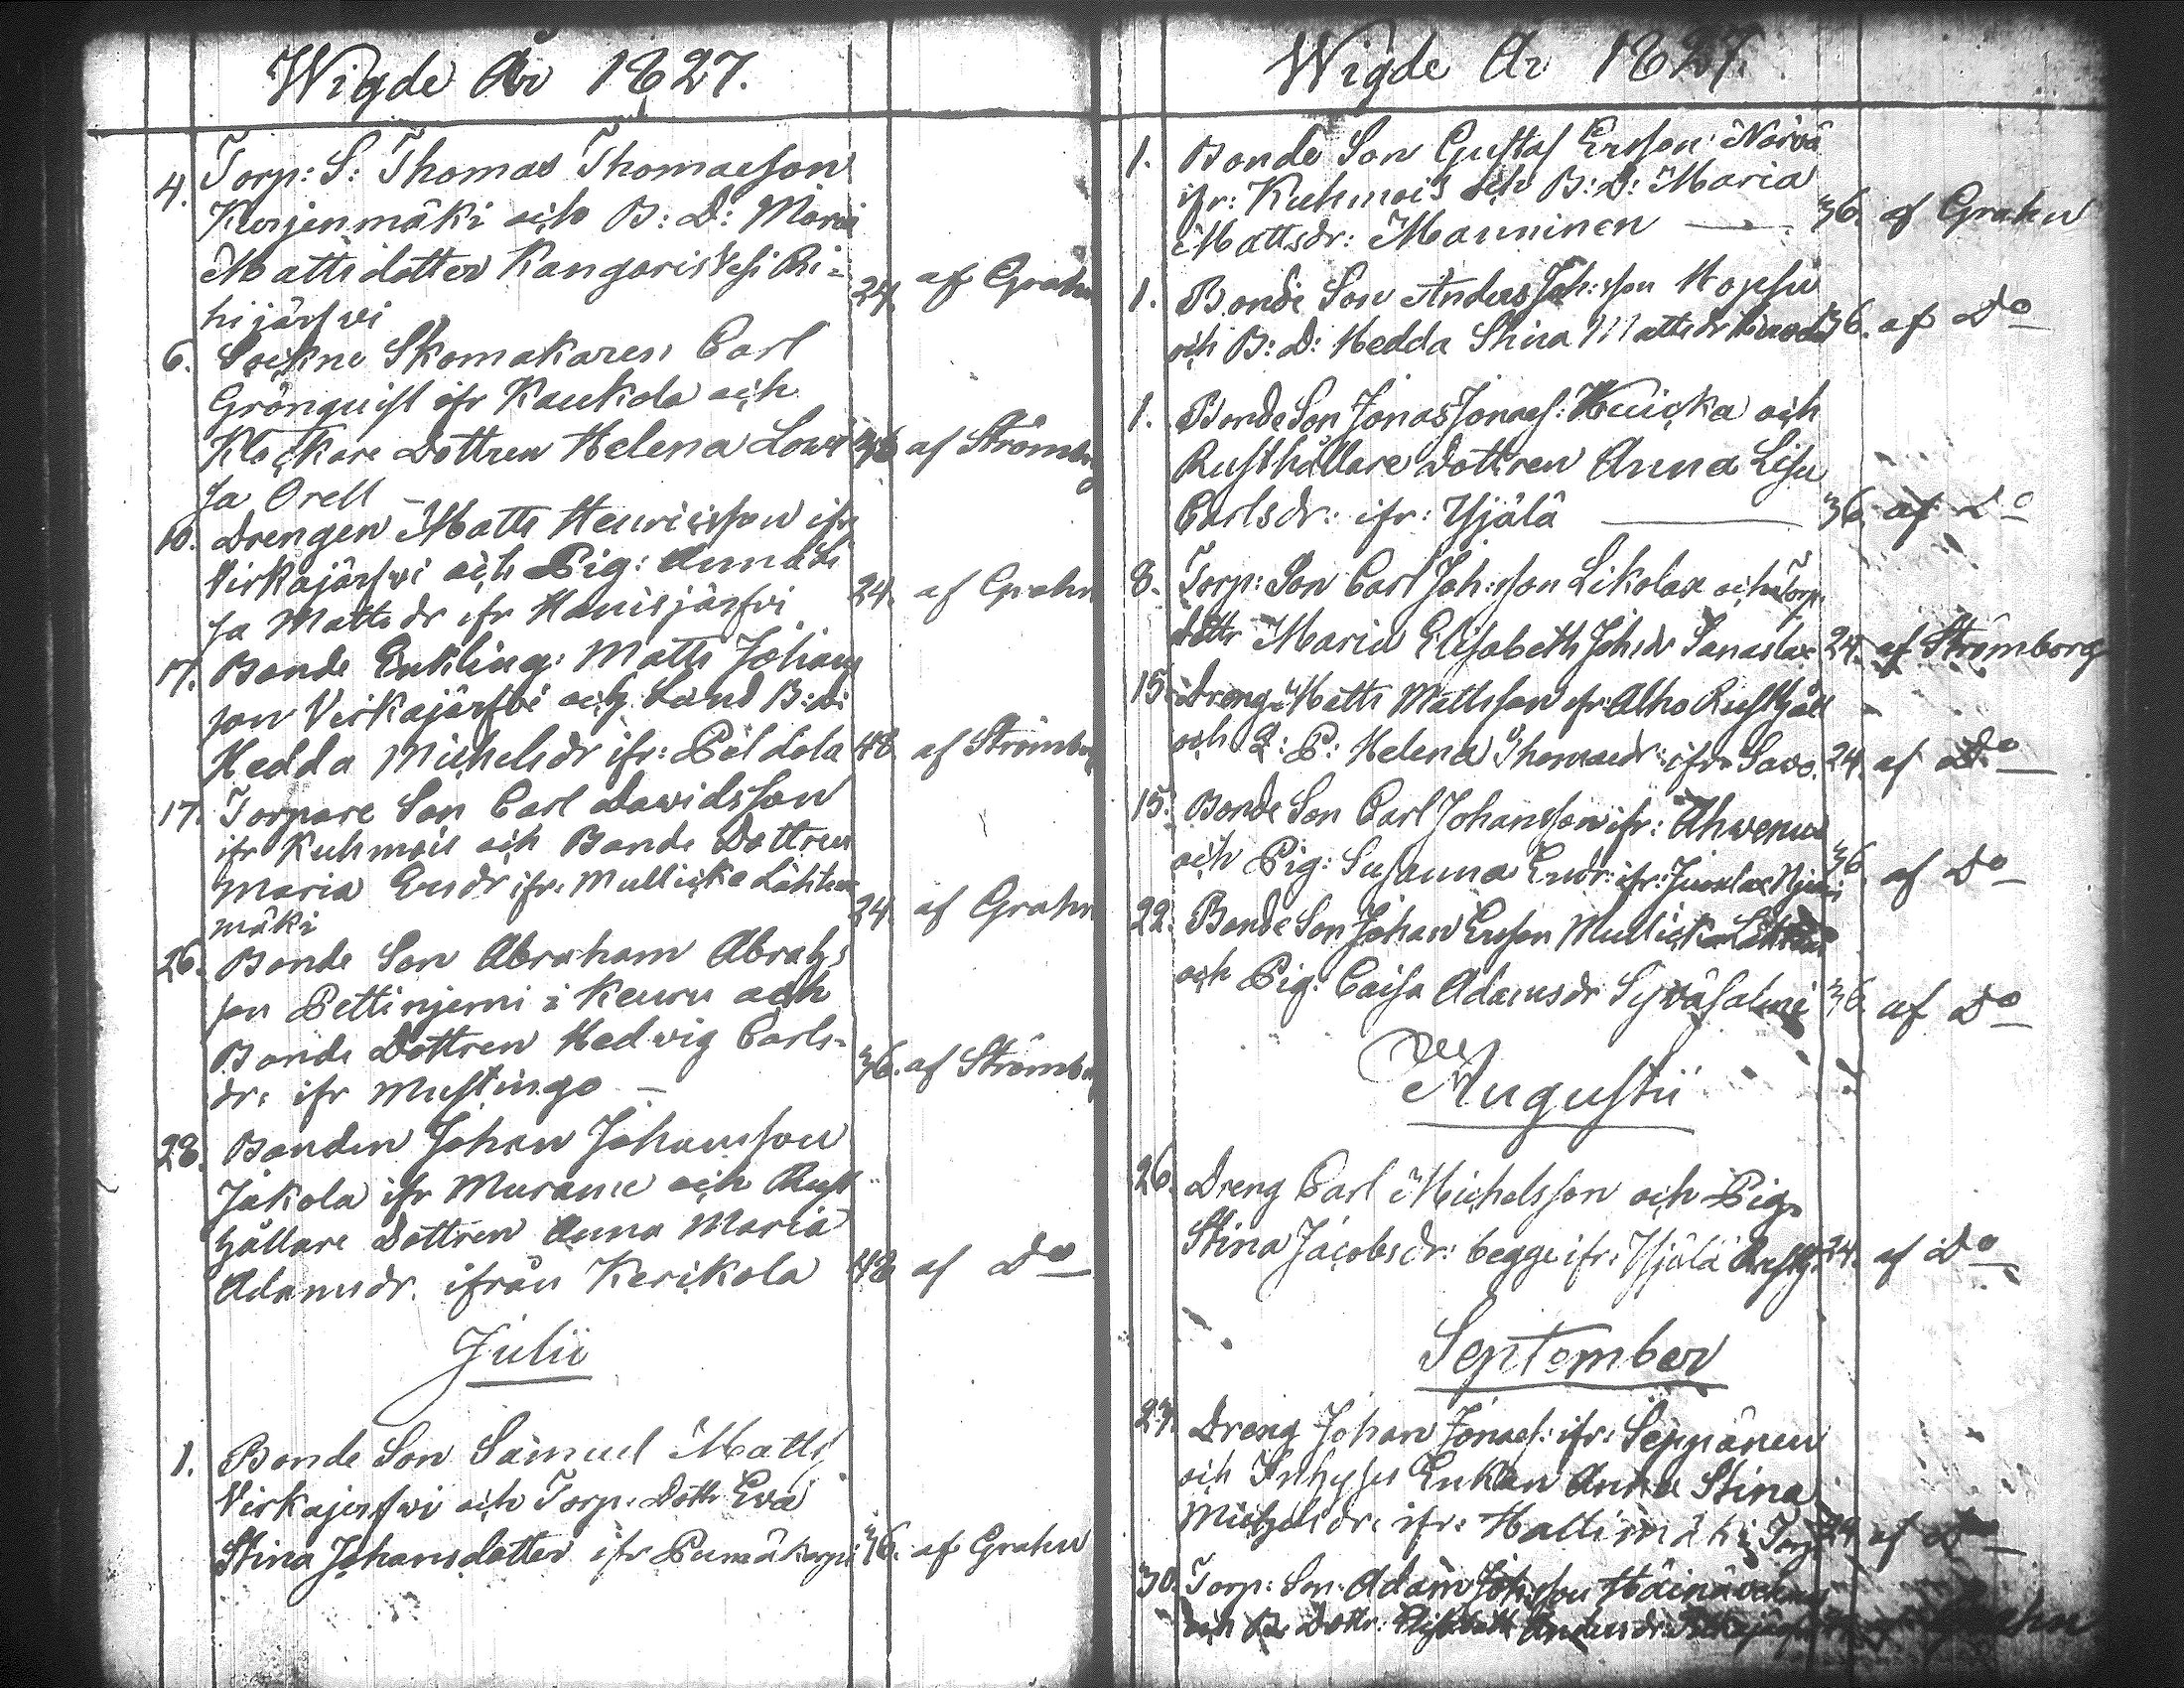 Wigde År 1827.
4. Torp: S: Thomas Thomasson
Kerjenmäki och B: D: Maria
Mattsdotter Kangariskesi Ri-
hijärfwi 24. af Grahn
6. Sockne Skomakaren Carl
Grönquist ifr Kaukola och
Klockare Dottren Helena Lowi-
sa Orell — 36 af Strömberg
10. Drengen Matts Henricsson ifr
Virkajärfwi och Pig: Anna Li
sa Mattsdr ifr Hauisjärfvi 24. af Grahn
17. Bonde Enkling: Matts Johans
son Virkajärfvi och Land B: D:
Hedda Michelsdr ifr: Pöldola 48 af Strömb
17. Torpare Son Carl Davidsson
ifr Kuhmois och Bonde Dottren
Maria Ersdr ifr: Mullicka Lähteen
mäki 24. af Grahn
26. Bonde Son Abraham Abrah:s
son Pettinjemi i Keuru och
Bonde Dottren Hedvig Carls-
dr: ifr Mustingo — 36. af Strömb
28. Bonden Johan Johansson
Jakola ifr Murame och Rust
hållare Dottren Anna Maria
Adamsdr. ifrån Kerikola 48 af Do
Julii
1. Bonde Son Samuel Matts
Virkajerfwi och Torp. Dottr Eva
Stina Johansdotter ifr Pumäkorpi 36. af Grahn
Wigde År 1827.
1. Bonde Son Gustaf Ersson Norvä
ifr: Kuhmois och B: D: Maria
Mattsdr: Mauninen — 36. af Grahn
1. Bonde Son Anders Joh:sson Hopsu
och B: D: Hedda Stina Mattsdr 36. af Do
1. Bonde Son Jonas Jonass: Kuicka och
Rusthållare Dottren Anna Lisa
Carlsdr: ifr: Hjälä — 36 af Do
8. Torp: Son Carl Joh:sson Likolax och Torp
dottr Maria Elisabeth Johsdr Sanaslax 24. af Strömborg
15. Dreng Matts Mattsson ifr: Alho Rusthåll
och Q: P: Helena Thomasdr: ifr Savo. 24. af Do
15. Bonde Son Carl Johansson ifr: Ahvenus
och Pig: Susanna Ersdr: ifr: 36 af Do
22. Bonde Son Johan Ersson Mullicka
och Pig: Caisa Adamsdr Syväsalmi 36. af Do
Augustii
26. Dreng Carl Michelsson och Pig:
Stina Jacobsdr: begge ifr: Hjälä Rusth: 24. af Do
September
23. Dreng Johan Jonass: ifr: Seppänen
och Inhyses Enkan Anna Stina
Michelsdr: ifr: Haltimäki Torp 24 af Do
30. Torp: Son: Adam Joh:sson
och B: Dottr: Elisabeth Andersdr Grahn